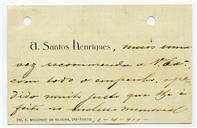 A. Santos Henriques, mais uma
vez recommenda a V. Ex.
com todo o empenho, o pe-
dido muito justo que lhe é
feito no incluso memorial
1-4-911